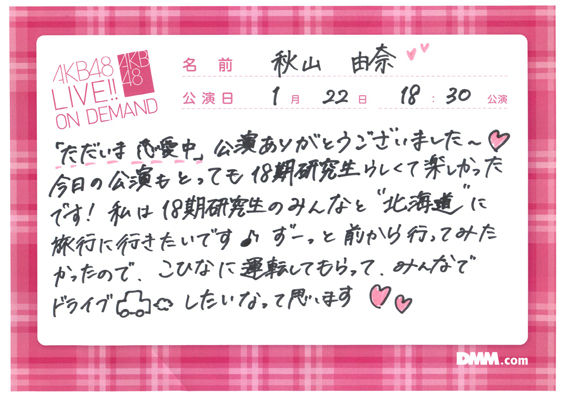 AKB48
LIVE!!
ON DEMAND
AKB
48
名前 秋山 由奈
公演日 1月 22日 18:30 公演
「ただいま 恋愛中」公演ありがとうございました~
今日の公演もとっても18期研究生らしくて楽しかった
です! 私は18期研究生のみんなと"北海道"に
旅行に行きたいです♪ ずーっと前から行ってみた
かったので、こひなに運転してもらって、みんなで
ドライブ したいなって思います
DMM.com